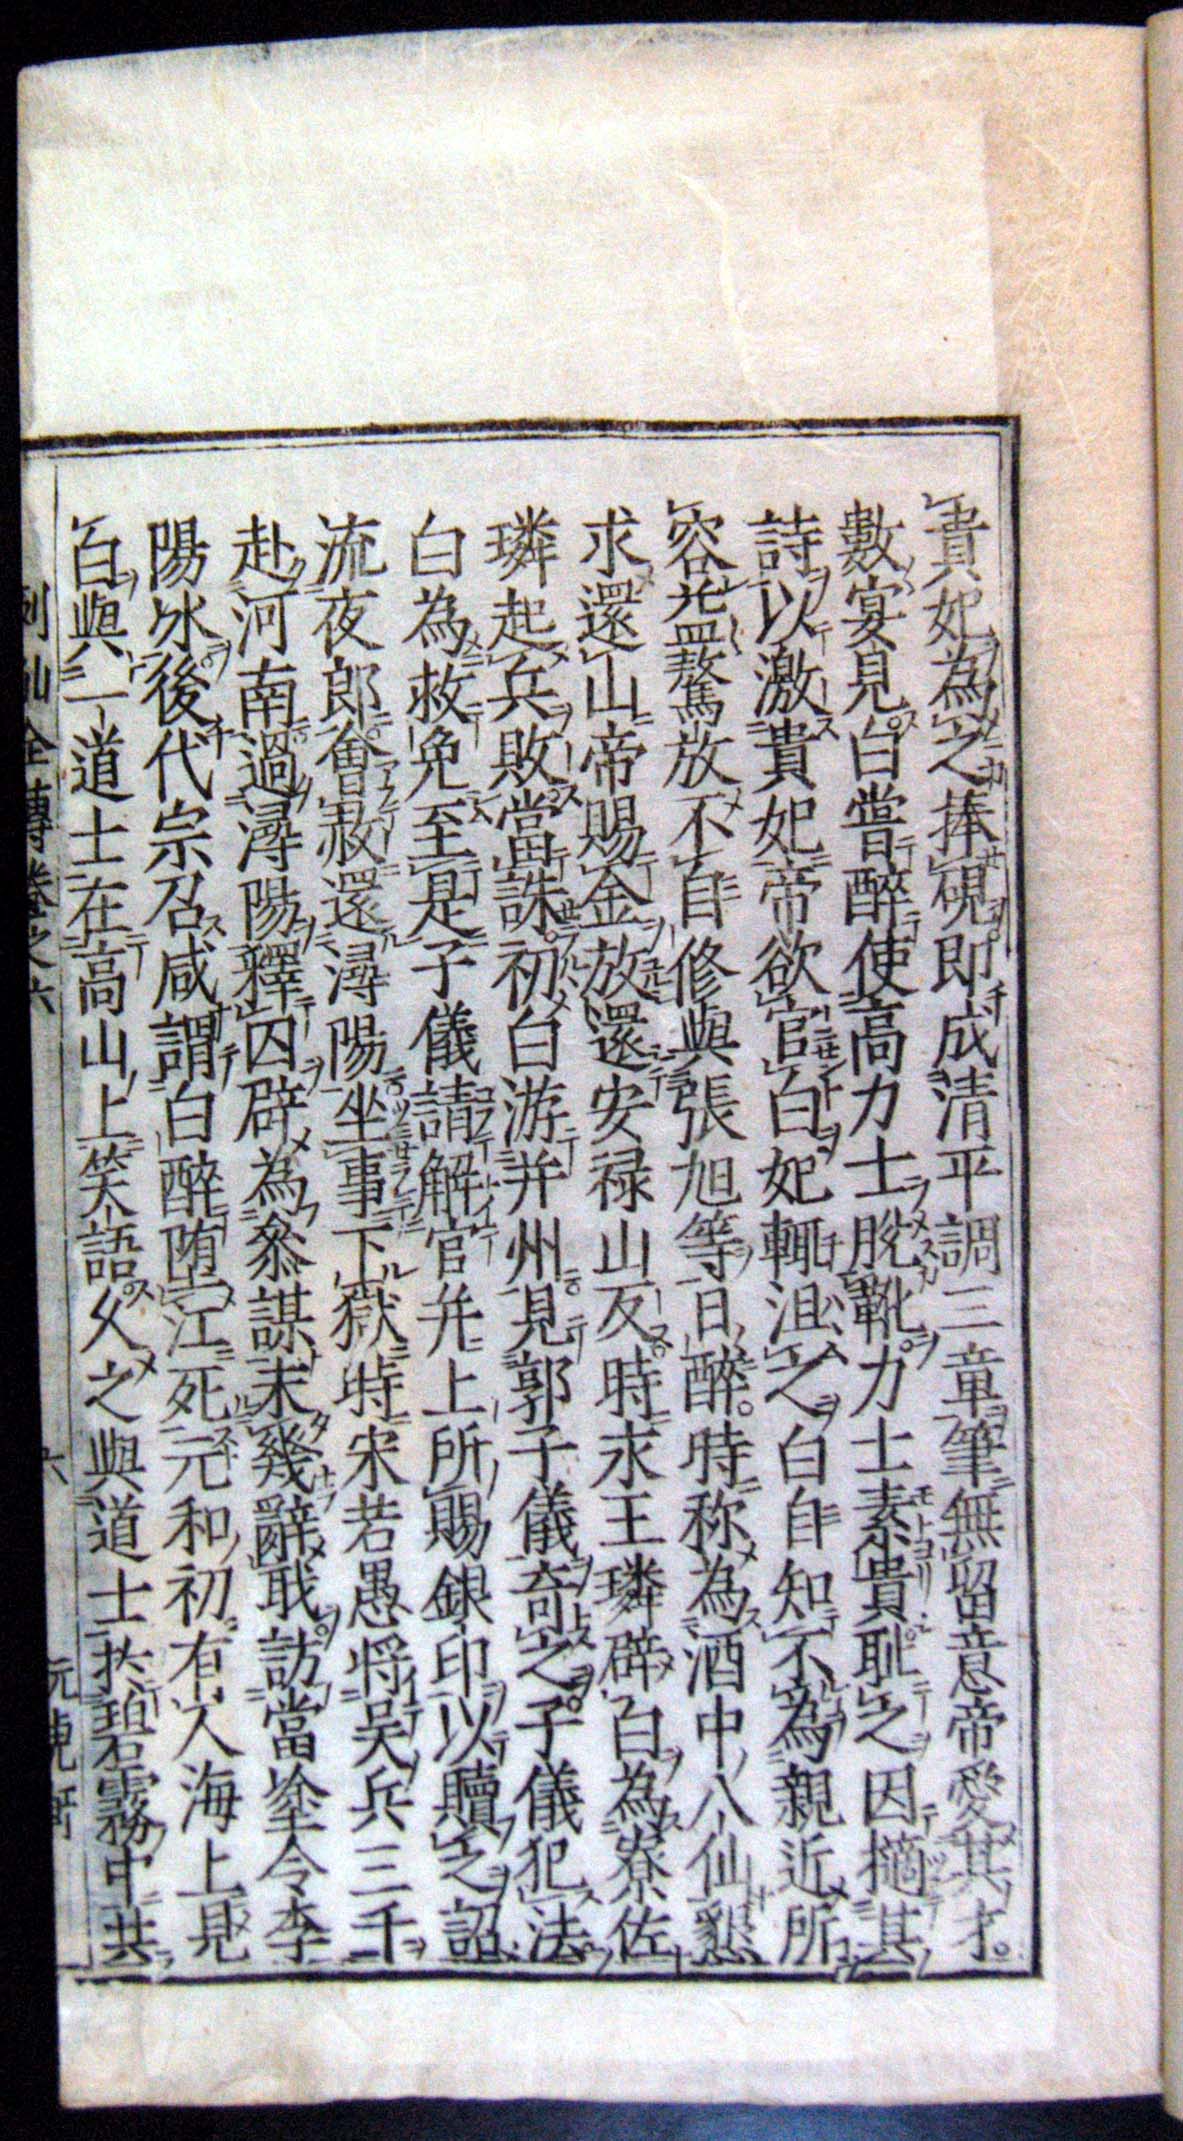 貴妃為之捧硯即成清平調三章筆無留意帝愛其才
數宴見白嘗醉使高力士脫靴力士素貴恥之因摘其
詩以激貴妃帝欲官白妃輒沮之白自知不為親近所
容益驁放不自修與張旭等日醉時称為酒中八仙懇
求還山帝賜金放還安禄山反時求王璘辟白為寮佐
璘起兵敗當誅初白游并州見郭子儀奇之子儀犯法
白為救免至是子儀請解官并上所賜銀印以贖之詔
流夜郎會赦還潯陽坐事下獄時宋若愚將吳兵三千
赴河南過潯陽釋囚辟為叅謀未幾辭職訪當塗令李
陽冰後代宗召咸謂白醉堕江死元和初有人海上見
白與一道士在高山上笑語久之與道士扵碧霧中共
列仙全傳卷之六
六